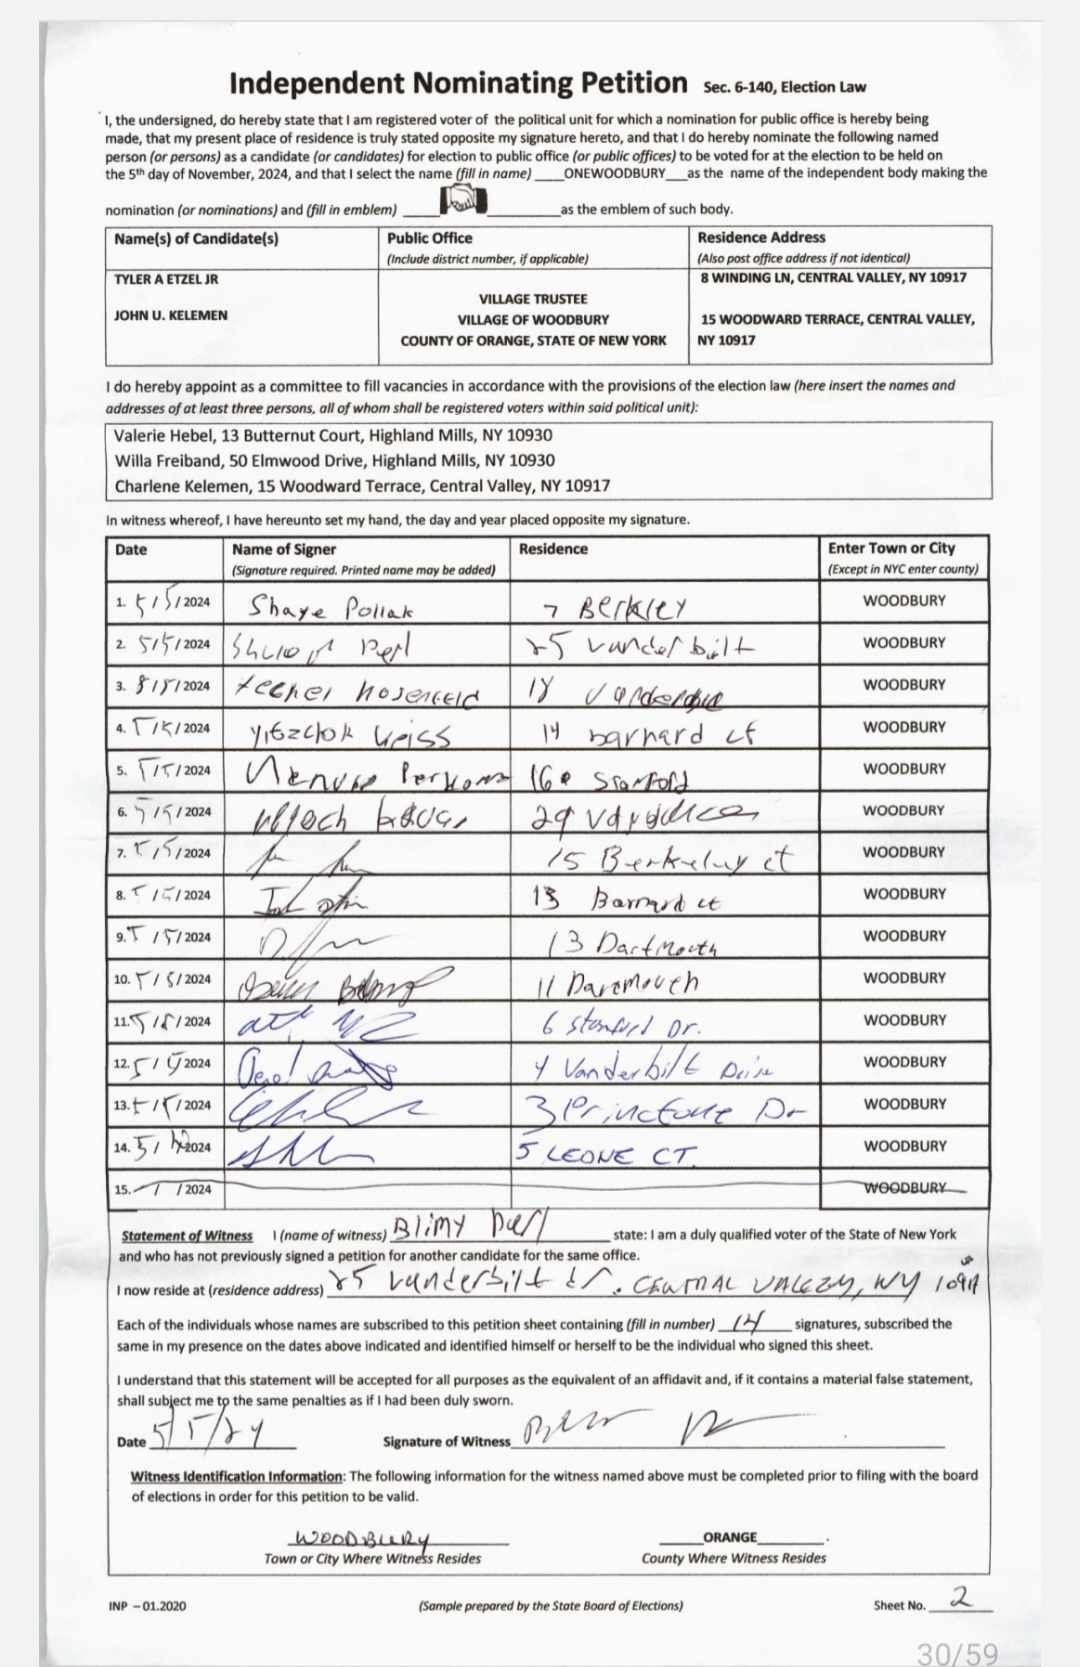 Independent Nominating Petition Sec. 6-140, Election Law
I, the undersigned, do hereby state that I am registered voter of the political unit for which a nomination for public office is hereby being
made, that my present place of residence is truly stated opposite my signature hereto, and that I do hereby nominate the following named
person (or persons) as a candidate (or candidates) for election to public office (or public offices) to be voted for at the election to be held on
the 5th day of November, 2024, and that I select the name (fill in name) ____ONEWOODBURY___as the name of the independent body making the
nomination (or nominations) and (fill in emblem) ____ ________as the emblem of such body.
Name(s) of Candidate(s) Public Office Residence Address
(Include district number, if applicable) (Also post office address if not identical)
TYLER A ETZEL JR 8 WINDING LN, CENTRAL VALLEY, NY 10917
VILLAGE TRUSTEE
JOHN U. KELEMEN VILLAGE OF WOODBURY 15 WOODWARD TERRACE, CENTRAL VALLEY,
COUNTY OF ORANGE, STATE OF NEW YORK NY 10917
I do hereby appoint as a committee to fill vacancies in accordance with the provisions of the election law (here insert the names and
addresses of at least three persons, all of whom shall be registered voters within said political unit):
Valerie Hebel, 13 Butternut Court, Highland Mills, NY 10930
Willa Freiband, 50 Elmwood Drive, Highland Mills, NY 10930
Charlene Kelemen, 15 Woodward Terrace, Central Valley, NY 10917
In witness whereof, I have hereunto set my hand, the day and year placed opposite my signature.
Date Name of Signer Residence Enter Town or City
(Signature required. Printed name may be added) (Except in NYC enter county)
1. 5/5/2024 Shaye Pollak 7 Berkley WOODBURY
2. 5/5/2024 Perl 25 Vanderbilt WOODBURY
3. /2024 18 WOODBURY
4. 5/5/2024 Yitzchok Weiss 14 barnard ct WOODBURY
5. 5/5/2024 Stanford WOODBURY
6. 5/5/2024 29 WOODBURY
7. 5/5/2024 15 Berkeley ct WOODBURY
8. 5/5/2024 13 Barnard ct WOODBURY
9. 5/5/2024 13 Dartmouth WOODBURY
10. 5/5/2024 11 Daremouth WOODBURY
11. 5/5/2024 6 Stanford Dr. WOODBURY
12. 5/5/2024 4 Vanderbilt Drive WOODBURY
13. 5/5/2024 3 Princetone Dr WOODBURY
14. 5/ /2024 5 LEONE CT. WOODBURY
15. / /2024 WOODBURY
Statement of Witness I (name of witness) Blimy Perl state: I am a duly qualified voter of the State of New York
and who has not previously signed a petition for another candidate for the same office.
I now reside at (residence address) 25 Vanderbilt dr. CENTRAL VALLEY, NY 10917
Each of the individuals whose names are subscribed to this petition sheet containing (fill in number) 14 signatures, subscribed the
same in my presence on the dates above indicated and identified himself or herself to be the individual who signed this sheet.
I understand that this statement will be accepted for all purposes as the equivalent of an affidavit and, if it contains a material false statement,
shall subject me to the same penalties as if I had been duly sworn.
Date 5/5/24 Signature of Witness
Witness Identification Information: The following information for the witness named above must be completed prior to filing with the board
of elections in order for this petition to be valid.
WOODBURY ORANGE
Town or City Where Witness Resides County Where Witness Resides
INP – 01.2020 (Sample prepared by the State Board of Elections) Sheet No. 2
30/59